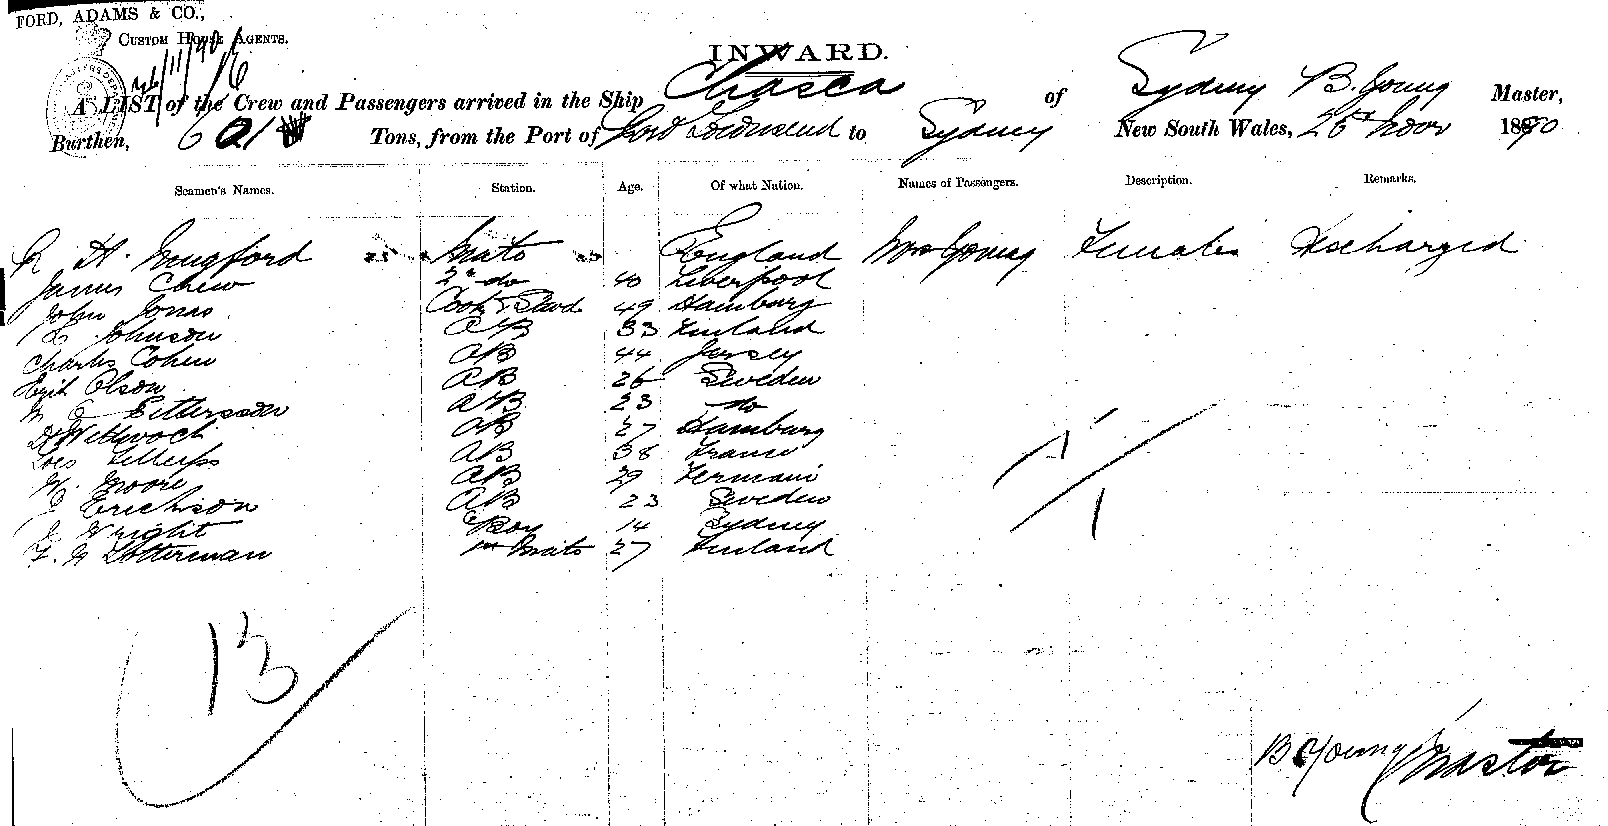 FORD, ADAMS & CO.,
CUSTOM HOUSE AGENTS.
26/11/90
INWARD.
A LIST of the Crew and Passengers arrived in the Ship Chasca of Sydney B. Young Master,
Burthen, 6 Tons, from the Port of Port Townsend to Sydney New South Wales, 25th Novr 1890
Seamen's Names. Station. Age. Of what Nation. Names of Passengers. Description. Remarks.
H. Mate England Mrs Young Female Discharged
James Chew 2d do 40 Liverpool
John Jonas Cook & Stwd 49 Hamburg
Johnson AB 33 Finland
Charles Cohen AB 44 Jersey
Olson AB 26 Sweden
AB 23 do
AB 27 Hamburg
AB 38 France
Moore AB 29
Erickson AB 23 Sweden
Wright Boy 14 Sydney
Lotterman 1st Mate 27 Finland
1
1
13
B Young Master